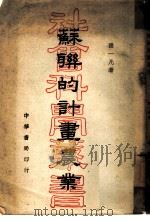 一凡著
社會科學叢書
蘇聯的計畫農業
中華書局印行